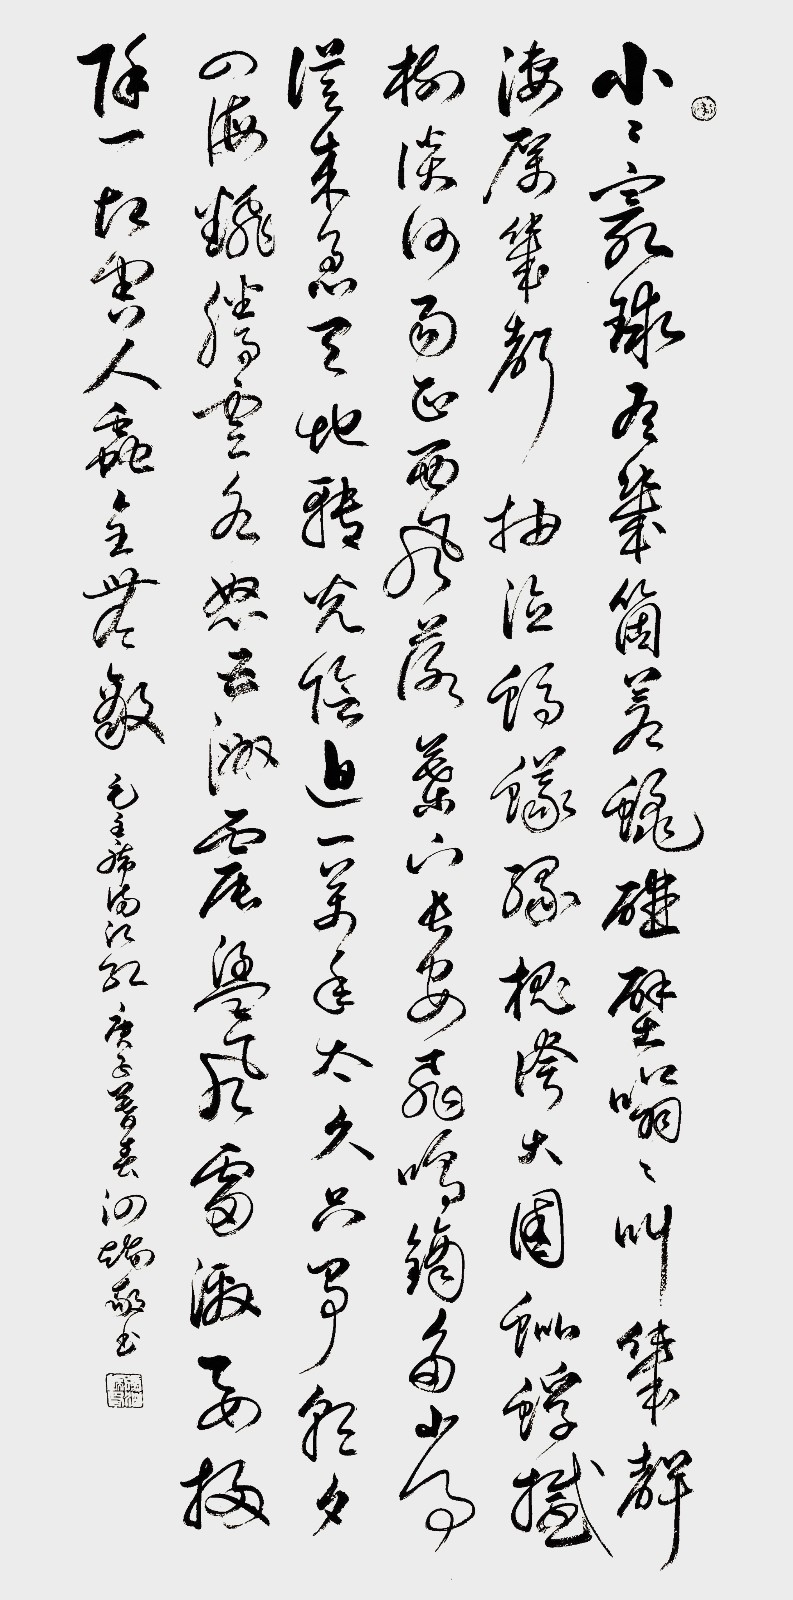 小〻寰球有幾箇蒼蠅碰壁嗡〻叫幾聲
淒厲幾聲抽泣螞蟻緣槐誇大國蚍蜉撼
樹談何易正西風落葉下長安飛鳴鏑多少事
從來急天地轉光陰迫一萬年太久只爭朝夕
四海飜騰雲水怒五洲震盪風雷激要掃
除一切害人蟲全無敵 毛主席滿江紅 庚子暮春 敬書